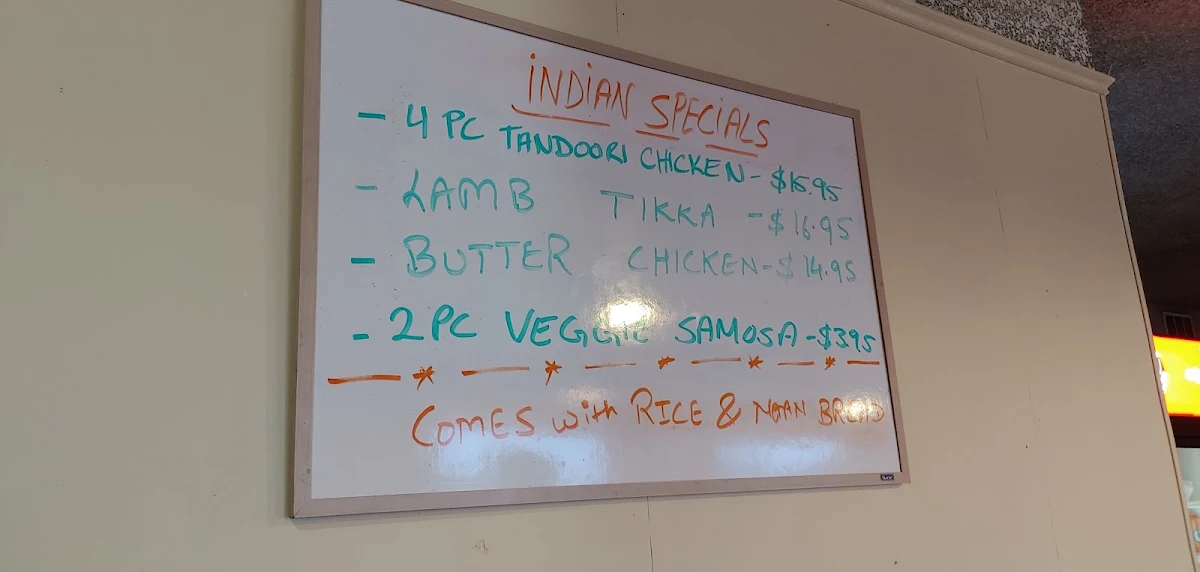 INDIAN SPECIALS
- 4 PC TANDOORI CHICKEN - $15.95
- LAMB TIKKA - $16.95
- BUTTER CHICKEN - $14.95
- 2 PC VEGGIE SAMOSA - $3.95
COMES with RICE & NAAN BREAD